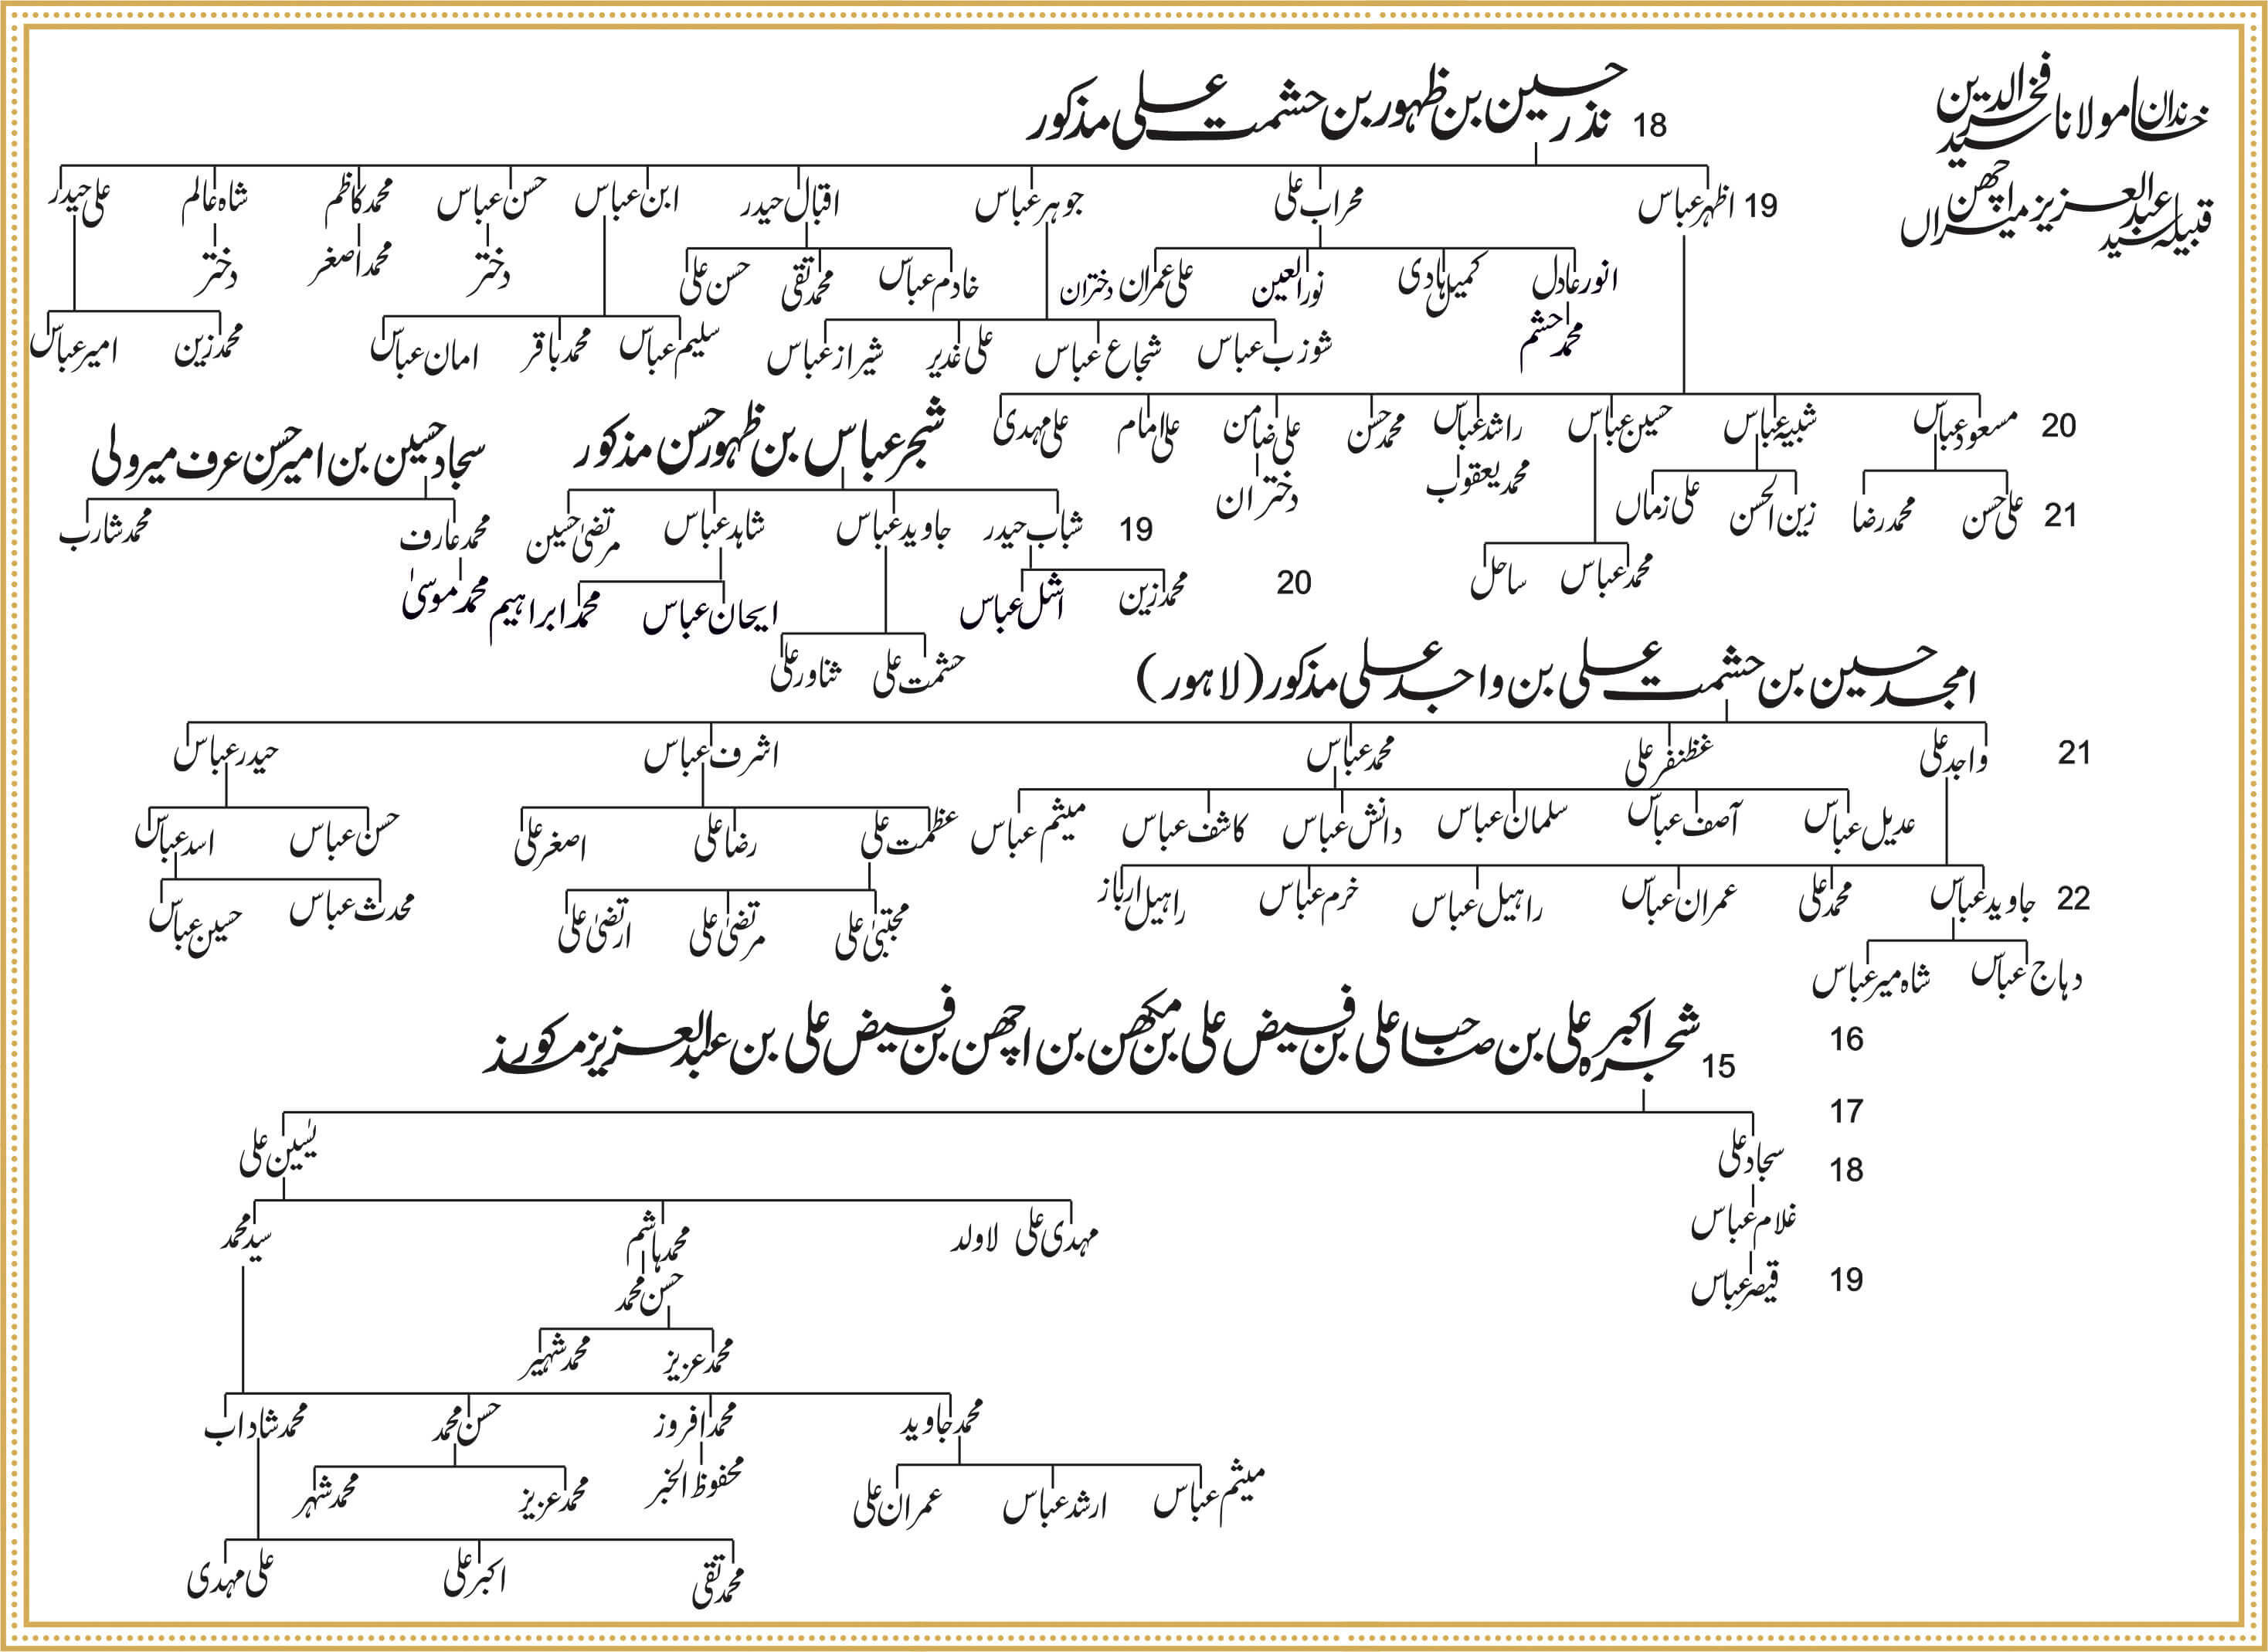 خاندان مولانا سید فخرالدین
قبیلہ سید عبدالعزیز اچھن میراں
18 نذر حسین بن ظہور بن حشمت علی مذکور
19 اظہر عباس محراب علی جوہر عباس اقبال حیدر ابن عباس حسن عباس محمد کاظم شاہ عالم علی حیدر
انور عادل کمیل ہادی نورالعین علی عمران دختران خادم عباس محمد تقی حسن علی دختر محمد اصغر دختر
محمد حشم شوزب عباس شجاع عباس علی غدیر شیراز عباس سلیم عباس محمد باقر امان عباس محمد زین امیر عباس
20 مسعود عباس شبیہ عباس حسین عباس راشد عباس محمد حسن علی ضامن علی امام علی مہدی
محمد یعقوب دختران
21 علی حسن محمد رضا زین الحسن علی زماں
محمد عباس ساحل
شجر عباس بن ظہور حسن مذکور
19 شباب حیدر جاوید عباس شاہد عباس مرتضیٰ حسین
20 محمد زین اشل عباس ایحان عباس محمد ابراہیم
حشمت علی شناور علی
سجاد حسین بن امیر حسن عرف میر ولی
محمد عارف محمد شارب
محمد موسیٰ
امجد حسین بن حشمت علی بن واجد علی مذکور (لاہور)
21 واجد علی غظنفر علی محمد عباس اشرف عباس حیدر عباس
عدیل عباس آصف عباس سلمان عباس دانش عباس کاشف عباس میثم عباس عظمت علی رضا علی اصغر علی حسن عباس اسد عباس
22 جاوید عباس محمد علی عمران عباس راہیل عباس خرم عباس راہیل ارباز مجتبیٰ علی مرتضیٰ علی ارتضیٰ علی محدث عباس حسین عباس
دہاج عباس شاہ میر عباس
16
15 شجرہ اکبر علی بن صاحب علی بن فیض علی بن مکھن بن اچھن بن فیض علی بن عبدالعزیز مذکور
17
سجاد علی یٰسین علی
18
غلام عباس مہدی علی لاولد محمد ہاشم سید محمد
19 قیصر عباس حسن محمد
محمد عزیز محمد شہیر
محمد جاوید محمد افروز حسن محمد محمد شاداب
میثم عباس ارشد عباس عمران علی محفوظ الخبر محمد عزیز محمد شہر
محمد تقی اکبر علی علی مہدی